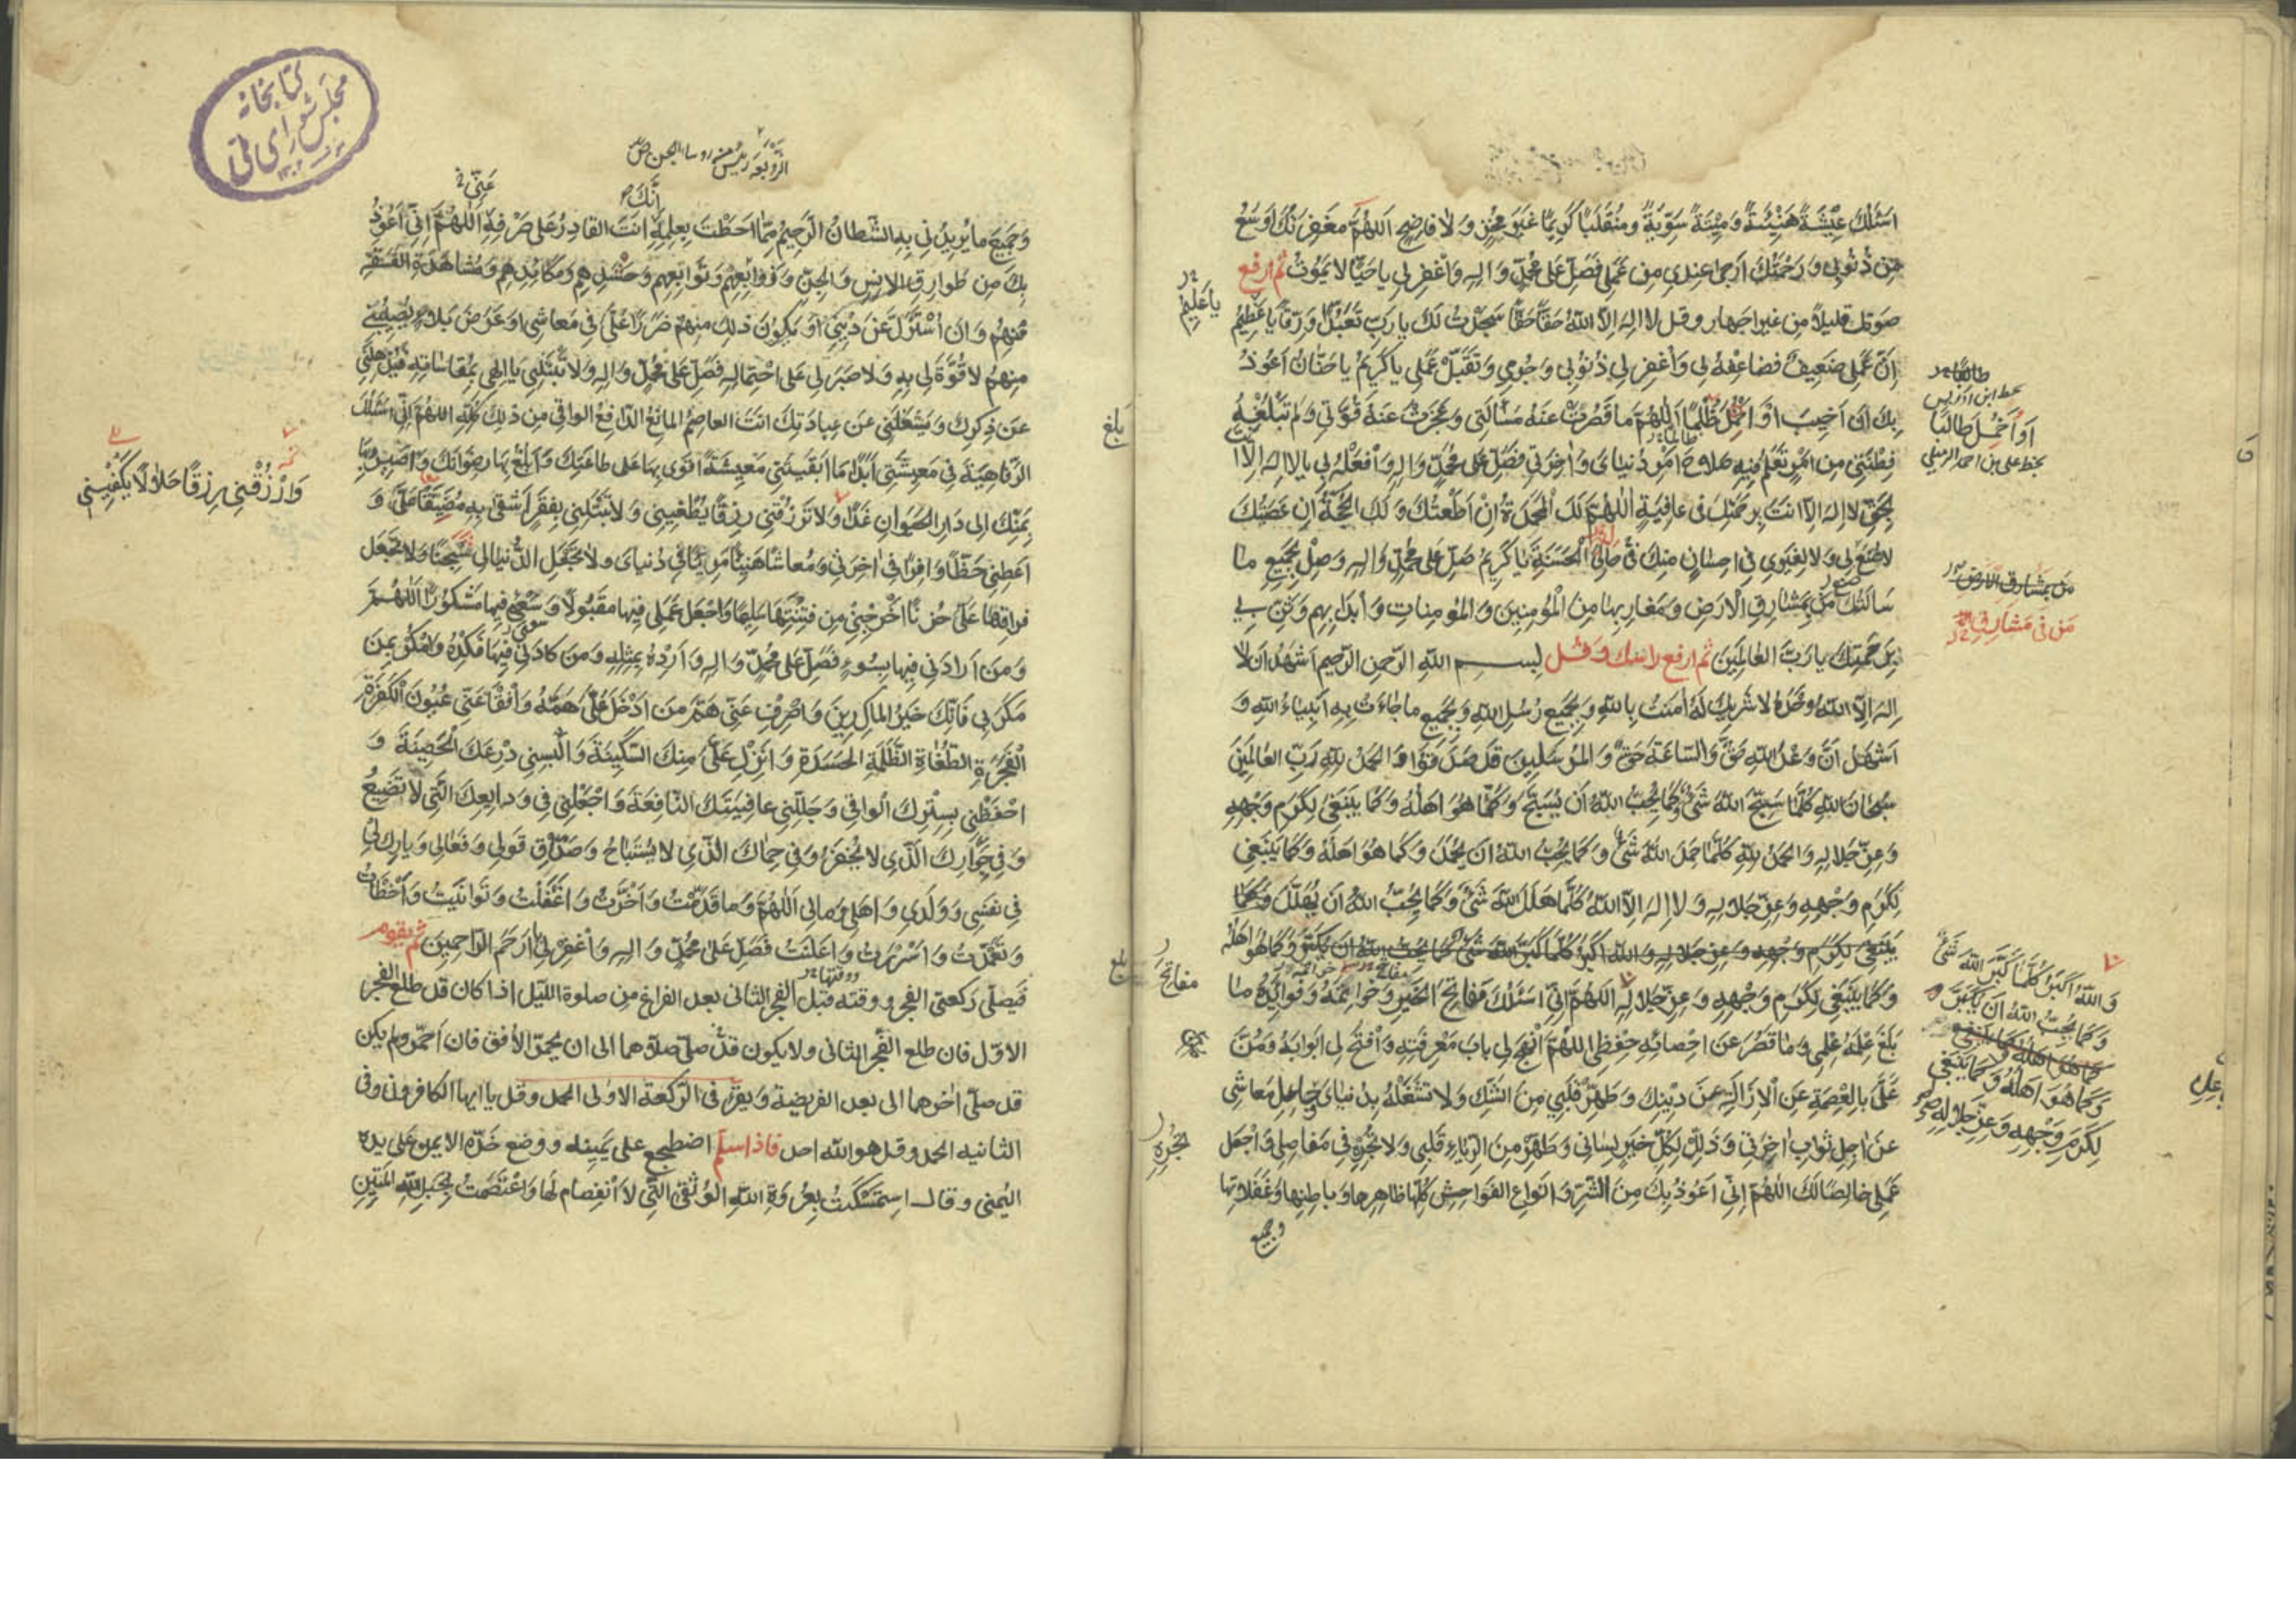 اَسْئَلُكَ عِيْشَةً هَنِيْئَةً وَمِيْتَةً سَوِيَّةً ومُنْقَلَبًا كَرِيمًا غَيْرَ مُخْزٍ وَلا فاضِحٍ اَللّٰهُمَّ مَغْفِرَتُكَ اَوْسَعُ
مِنْ ذُنُوبي وَرَحْمَتُكَ اَرْجىٰ عِنْدي مِن عَمَلي فَصَلِّ عَلى مُحَمَّدٍ وَالِهِ وَاغْفِرلي ياحَيًّا لايَمُوتُ ثم ارفع
صوتك قليلاً من غير اجهار وقل لا اِلٰهَ اِلاّ اللهُ حَقًّا حَقًّا سَجَدْتُ لَكَ يارَبِّ تَعَبُّدًا وَرِقًّا ياعَظِيمُ
ياعَلِيمُ
اِنَّ عَمَلي ضَعِيفٌ فَضاعِفْهُ لي وَاغْفِرلي ذُنُوبي وَجُرْمي وَتَقَبَّلْ عَمَلي ياكَرِيمُ ياحَنّانُ اَعُوذُ
بِكَ اَنْ اَخِيبَ اَوْ اَحْمِلَ ظُلْمًا اَللّٰهُمَّ ما قَصُرَتْ عَنْهُ مَسْأَلَتي وَعَجَزَتْ عَنْهُ قُوَّتي وَلَم تَبْلُغْهُ
اَوْ اَحْمِلَ طالبًا
بخط علي بن احمد الرميلي
فِطْنَتي مِن اَمْرٍ تَعْلَمُ فِيهِ صَلاحَ اَمْرِ دُنيايَ وَاٰخِرَتي فَصَلِّ عَلى مُحَمَّدٍ وَالِهِ وَافْعَلْهُ بي يالا اِلٰهَ اِلاّ انتَ
بِحَقِّ لا اِلٰهَ اِلاّ انتَ بِرَحْمَتِكَ في عافِيَةٍ اَللّٰهُمَّ لَكَ الْمَحْمَدَةُ اِنْ اَطَعْتُكَ وَلَكَ الْحُجَّةُ اِنْ عَصَيْتُكَ
لاصُنْعَ لي وَلا لِغَيري في اِحسانٍ مِنكَ في حالِي الْحَسَنَةِ ياكَرِيمُ صَلِّ عَلى مُحَمَّدٍ وَالِهِ وَصِلْ بِجَمِيعِ ما
سَاَلْتُكَ مَن بِمَشارِقِ الْاَرضِ وَمَغارِبِها مِنَ الْمُؤمِنِينَ وَالمُؤمِناتِ وَابْدَأْ بِهِم وَثَنِّ بي
مَن بمَشارِقِ الارضِ
مَن في مَشارِقِ
بِرَحمَتِكَ يارَبَّ العالَمِينَ ثم ارفع راسك وقل بسم الله الرحمن الرحيم اَشهَدُ اَن لا
اِلٰهَ اِلاّ اللهُ وَحْدَهُ لا شَرِيكَ لَهُ اٰمَنتُ باللهِ وَبِجَمِيعِ رُسُلِ اللهِ وَبِجَمِيعِ ماجاءَت بِهِ اَنبِياءُ اللهِ وَ
اَشهَدُ اَنَّ وَعْدَ اللهِ حَقٌّ وَالسّاعَةَ حَقٌّ وَالمُرسَلِينَ قَد صَدَقُوا وَالحَمدُ للهِ رَبِّ العالَمِينَ
سُبحانَ اللهِ كُلَّما سَبَّحَ اللهَ شَيْءٌ وَكَما يُحِبُّ اللهُ اَن يُسَبَّحَ وَكَما هُوَ اَهلُهُ وَكَما يَنبَغي لِكَرَمِ وَجهِهِ
وَعِزِّ جَلالِهِ وَالحَمدُ للهِ كُلَّما حَمِدَ اللهَ شَيْءٌ وَكَما يُحِبُّ اللهُ اَن يُحمَدَ وَكَما هُوَ اَهلُهُ وَكَما يَنبَغي
لِكَرَمِ وَجهِهِ وَعِزِّ جَلالِهِ وَلا اِلٰهَ اِلاّ اللهُ كُلَّما هَلَّلَ اللهَ شَيْءٌ وَكَما يُحِبُّ اللهُ اَن يُهَلَّلَ وَكَما
يَنبَغي لِكَرَمِ وَجهِهِ وَعِزِّ جَلالِهِ وَاللهُ اَكبَرُ كُلَّما كَبَّرَ اللهَ شَيْءٌ كَما يُحِبُّ اللهُ اَن يُكَبَّرَ وَكَما هُوَ اَهلُهُ
وَاللهُ اَكبَرُ كُلَّما كَبَّرَ اللهَ شَيْءٌ
وَكَما يُحِبُّ اللهُ اَن يُكَبَّرَ
كما هُوَ اَهلُهُ وَكَما يَنبَغي
وَكَما هُوَ اَهلُهُ وَكَما يَنبَغي
لِكَرَمِ وَجهِهِ وَعِزِّ جَلالِهِ
وَكَما يَنبَغي لِكَرَمِ وَجهِهِ وَعِزِّ جَلالِهِ اَللّٰهُمَّ اِنّي اَسئَلُكَ مَفاتِحَ الخَيرِ وَخَواتِمَهُ وَفَوائِدَهُ ما
مفاتِحَ
بَلَغَ عِلمَهُ عِلمي وَما قَصُرَ عَن اِحصائِهِ حِفظي اَللّٰهُمَّ انْهَج لي بابَ مَعرِفَتِهِ وَافتَح لي اَبوابَهُ وَمُنَّ
عَلَيَّ بالعِصمَةِ عَنِ الْاِزالَةِ عَن دِينِكَ وَطَهِّر قَلبي مِنَ الشَّكِّ وَلا تَشغَلْهُ بِدُنيايَ وَعاجِلِ مَعاشي
عَن اٰجِلِ ثَوابِ اٰخِرَتي وَذَلِّل لِكُلِّ خَيرٍ لِساني وَطَهِّر مِنَ الرِّياءِ قَلبي وَلا تُجْرِهِ في مَفاصِلي وَاجعَل
عَمَلي خالِصًا لَكَ اَللّٰهُمَّ اِنّي اَعُوذُ بِكَ مِنَ الشَّرِّ وَاَنواعِ الفَواحِشِ كُلِّها ظاهِرِها وَباطِنِها وَغَفَلاتِها
وجميع
كتابخانه
مجلس شورای ملی
الزَّوبَعَة رئيس من روساء الجن ص
اِنَّكَ
عَنّي
وَجَمِيعِ ما يُرِيدُني بِهِ الشَّيطانُ الرَّجِيمُ مِمّا اَحَطتَ بِعِلمِهِ اَنتَ القادِرُ عَلى صَرفِهِ اَللّٰهُمَّ اِنّي اَعُوذُ
بِكَ مِن طَوارِقِ الاِنسِ وَالجِنِّ وَزَوابِعِهِم وَتَوابِعِهِم وَحَسَدِهِم وَمَكائِدِهِم وَمُشاهَدَةِ الفَسَقَةِ
مِنهُم وَاَن اُستَزَلَّ عَن دِيني اَو يَكُونَ ذلِكَ مِنهُم ضَرَرًا عَلَيَّ في مَعاشي اَو عَرَضَ بَلاءٍ يُصِيبُني
مِنهُم لا قُوَّةَ لي بِهِ وَلا صَبرَ لي عَلى احتِمالِهِ فَصَلِّ عَلى مُحَمَّدٍ وَالِهِ وَلا تَبتَلِني يا اِلٰهي بِمُقاساتِهِ فَيُذهِلَني
عَن ذِكرِكَ وَيَشغَلَني عَن عِبادَتِكَ اَنتَ العاصِمُ المانِعُ الدّافِعُ الواقي مِن ذلِكَ كُلِّهِ اَللّٰهُمَّ اِنّي اَسئَلُكَ
بلغ
الرَّفاهِيَةَ في مَعِيشَتي اَبَدًا ما اَبقَيتَني مَعِيشَةً اَقوى بِها عَلى طاعَتِكَ وَاَبلُغُ بِها رِضوانَكَ وَاَصِيرُ بِها
وَارْزُقْني رِزقًا حَلالاً يَكفِيني
بِمَنِّكَ اِلى دارِ الحَيَوانِ غَدًا وَلا تَرزُقني رِزقًا يُطغِيني وَلا تَبتَلِني بِفَقرٍ اَشقى بِهِ مُضَيَّقًا عَلَيَّ وَ
اَعطِني حَظًّا وافِرًا في اٰخِرَتي وَمَعاشًا هَنِيئًا مَرِيئًا في دُنيايَ وَلا تَجعَلِ الدُّنيا لي سِجنًا وَلا تَجعَل
فِراقَها عَلَيَّ حُزنًا اَخرِجني مِن فِتنَتِها سَلِيمًا وَاجعَل عَمَلي فِيها مَقبُولاً وَسَعيي فِيها مَشكُورًا اَللّٰهُمَّ
وَمَن اَرادَني فِيها بِسُوءٍ فَصَلِّ عَلى مُحَمَّدٍ وَالِهِ وَاَرِدهُ بِمِثلِهِ وَمَن كادَني فِيها فَكِدهُ وَامكُر بِمَن
مَكَرَبي فَاِنَّكَ خَيرُ الماكِرِينَ وَاصرِف عَنّي هَمَّ مَن اَدخَلَ عَلَيَّ هَمَّهُ وَافقَأ عَنّي عُيُونَ الكَفَرَةِ
الفَجَرَةِ الطُّغاةِ الظَّلَمَةِ الحَسَدَةِ وَاَنزِل عَلَيَّ مِنكَ السَّكِينَةَ وَاَلبِسني دِرعَكَ الحَصِينَةَ وَ
احفَظني بِسِترِكَ الواقي وَجَلِّلني عافِيَتَكَ النّافِعَةَ وَاجعَلني في وَدايِعِكَ الَّتي لا تَضِيعُ
وَفي جِوارِكَ الَّذي لا يُخفَرُ وَفي حِماكَ الَّذي لا يُستَباحُ وَصَدِّق قَولي وَفِعالي وَبارِك لي
في نَفسي وَوَلَدي وَاَهلي وَمالي اَللّٰهُمَّ وَما قَدَّمتُ وَاَخَّرتُ وَاَغفَلتُ وَتَوانَيتُ وَاَخطَأتُ
وَتَعَمَّدتُ وَاَسرَرتُ وَاَعلَنتُ فَصَلِّ عَلى مُحَمَّدٍ وَالِهِ وَاغفِرلي يا اَرحَمَ الرّاحِمِينَ ثم يقوم
فيصلي ركعتي الفجر ووقته قبل الفجر الثاني بعد الفراغ من صلوة الليل اذا كان قد طلع الفجر
الاول فان طلع الفجر الثاني ولا يكون قد صلى صلاهما الى ان يحمر الافق فان احمر ولم يكن
قد صلى اخرهما الى بعد الفريضة ويقرء في الركعة الاولى الحمد وقل يا ايها الكافرون وفي
الثانيه الحمد وقل هو الله احد فاذا سلم اضطجع على يمينه ووضع خده الايمن على يده
اليمنى وقال استَمسَكتُ بِعُروَةِ اللهِ الوُثقى الَّتي لا انفِصامَ لَها وَاعتَصَمتُ بِحَبلِ اللهِ المَتِينِ